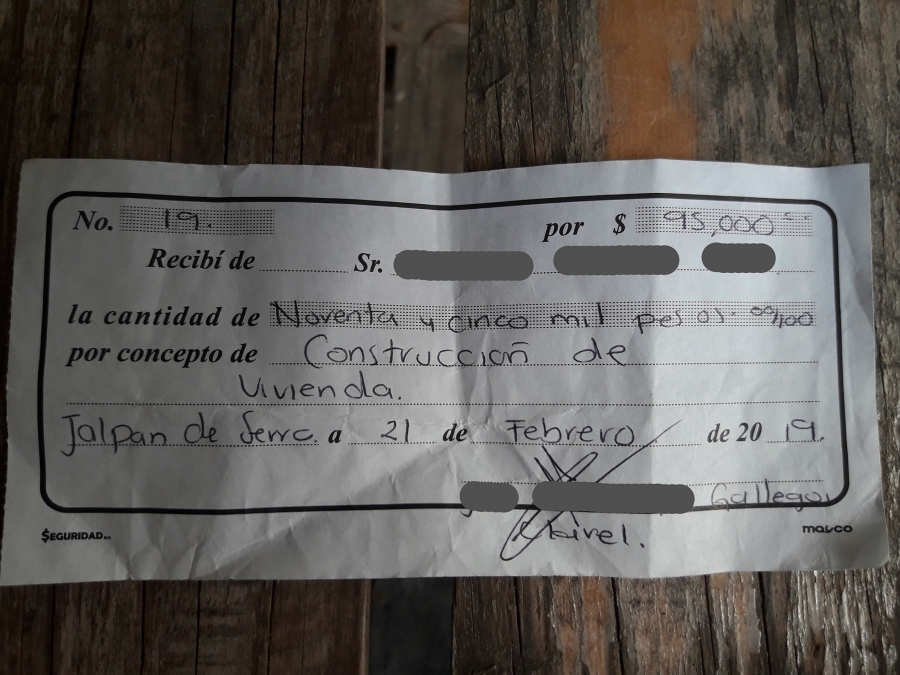 No. 19. por $ 95,000.°°
Recibí de Sr.
la cantidad de Noventa y cinco mil pesos. 00/100
por concepto de Construccion de
Vivienda.
Jalpan de Serra. a 21 de Febrero de 20 19.
Gallegos
$EGURIDAD..
masco